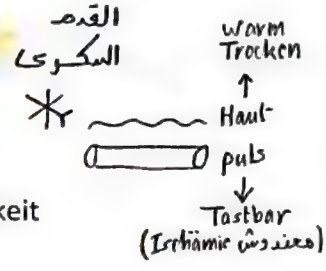 القدم
السكري
Warm
Trocken
Haut
puls
keit
Tastbar
(Ischämie معندوش)